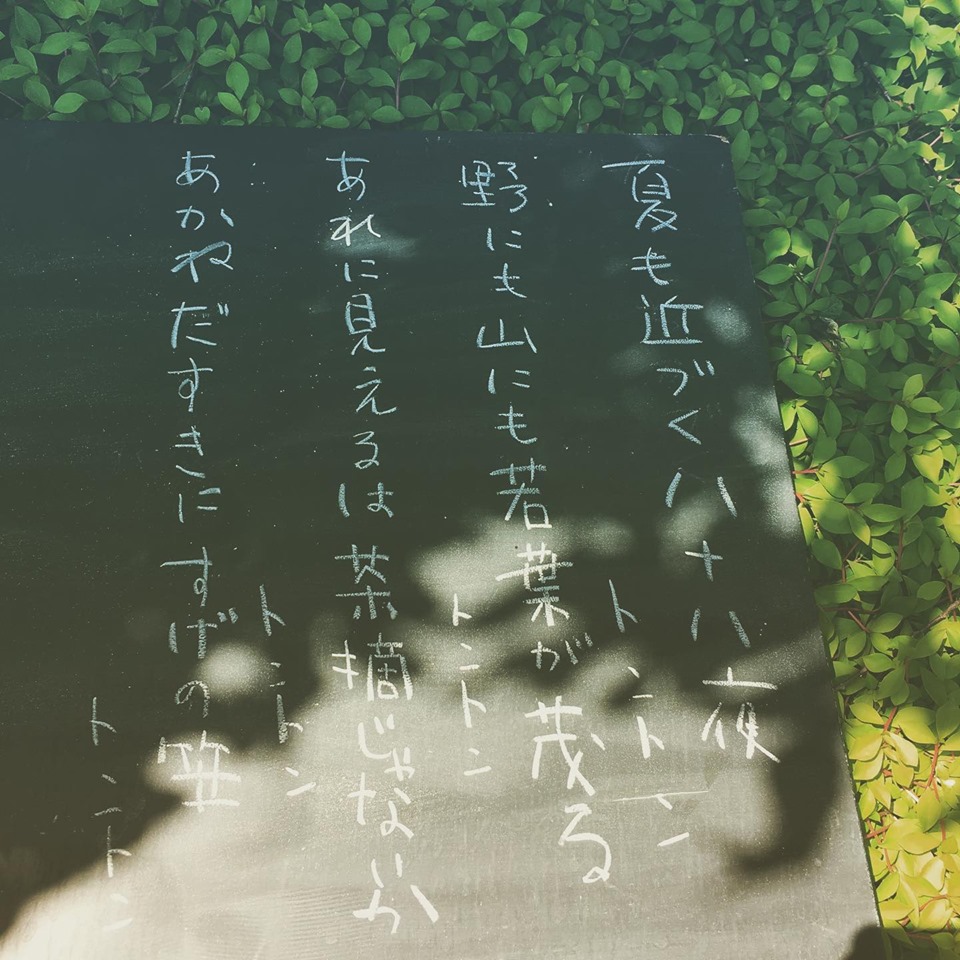 夏も近づく八十八夜
トントン
野にも山にも若葉が茂る
トントン
あれに見えるは茶摘じゃないか
トントン
あかねだすきにすげの笠
トントン